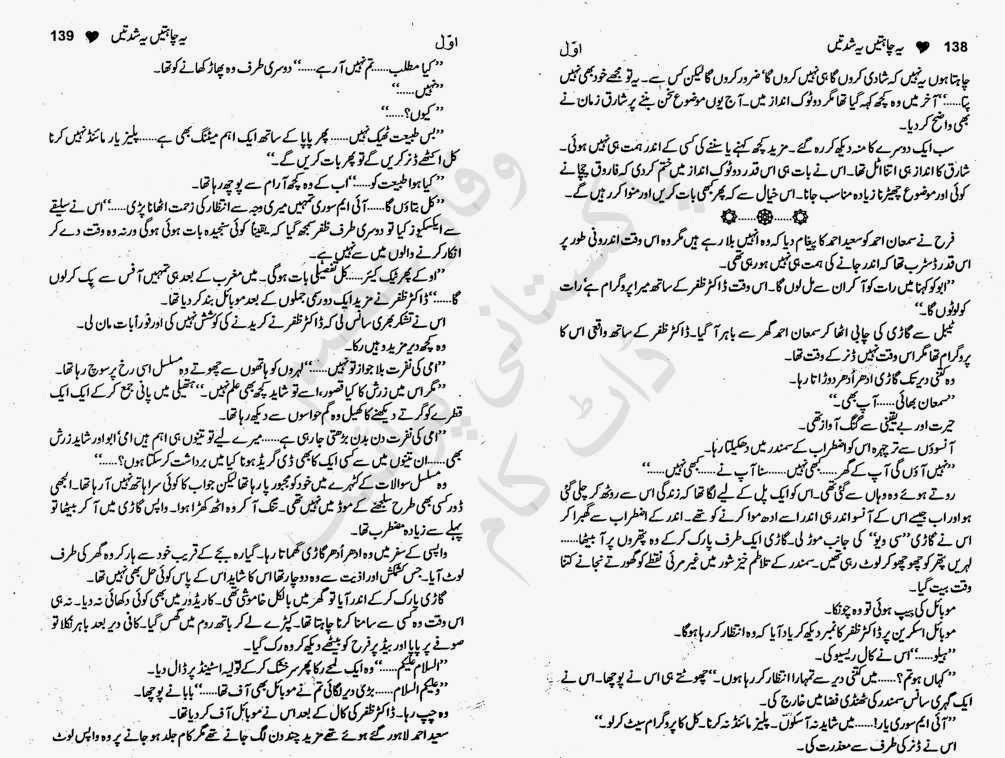 138 ♥ یہ چاہتیں یہ شدتیں اوّل
چاہتا ہوں یہ نہیں کہ شادی کروں گا ہی نہیں کروں گا‘ ضرور کروں گا لیکن کس سے۔ یہ تو مجھے خود بھی نہیں
پتا......’’ آخر میں وہ کچھ کہہ گیا تھا مگر دوٹوک انداز میں۔ آج یوں موضوع سخن بننے پر شارق زمان نے
بھی واضح کر دیا۔
سب ایک دوسرے کا منہ دیکھ کر رہ گئے۔ مزید کچھ کہنے یا سننے کی کسی کے اندر ہمت ہی نہیں ہوئی۔
شارق کا انداز ہی اتنا اٹل تھا۔ اس نے بات ہی اس قدر دوٹوک انداز میں ختم کر دی کہ فاروق چچا نے
کوئی اور موضوع چھیڑنا زیادہ مناسب جانا۔ اس خیال سے کہ پھر کبھی بات کریں اور منوا کر رہیں گے۔
۞......۞......۞
فرح نے سمعان احمد کو سعید احمد کا پیغام دیا کہ وہ انہیں بلا رہے ہیں مگر وہ اس وقت اندرونی طور پر
اس قدر ڈسٹرب تھا کہ اندر جانے کی ہمت ہی نہیں ہو رہی تھی۔
’’ابو کو کہنا میں رات کو آ کر ان سے مل لوں گا۔ اس وقت ڈاکٹر ظفر کے ساتھ میرا پروگرام ہے‘ رات
کو لوٹوں گا۔‘‘
ٹیبل سے گاڑی کی چابی اٹھا کر سمعان احمد گھر سے باہر آ گیا۔ ڈاکٹر ظفر کے ساتھ واقعی اس کا
پروگرام تھا مگر اس وقت نہیں ڈنر کے وقت تھا۔
وہ کتنی دیر تک گاڑی اِدھر اُدھر دوڑاتا رہا۔
’’سمعان بھائی...... آپ بھی۔‘‘
حیرت اور بے یقینی سے گنگ آواز تھی۔
آنسوؤں سے تر چہرہ اس کو اضطراب کے سمندر میں دھکیلتا رہا۔
’’نہیں آؤں گی آپ کے گھر...... کبھی نہیں...... سنا آپ نے...... کبھی نہیں......‘‘
روتے ہوئے وہ وہاں سے گئی تھی۔ اس کو ایک پل کے لیے لگا تھا کہ زندگی اس سے روٹھ کر چلی گئی
ہو اور اب جیسے اس کے آنسو اندر ہی اندر اسے ادھ موا کرنے کو تھے۔ اندر کے اضطراب سے گھبرا کر
اس نے گاڑی ’’سی ویو‘‘ کی جانب موڑ لی۔ گاڑی ایک طرف پارک کر کے وہ پتھروں پر آ بیٹھا......
لہریں پتھر کو چھو چھو کر لوٹ رہی تھیں۔ سمندر کے تلاطم خیز شور میں غیر مرئی نقطے کو گھورتے نجانے کتنا
وقت بیت گیا۔
موبائل کی بیپ ہوئی تو وہ چونکا۔
موبائل اسکرین پر ڈاکٹر ظفر کا نمبر دیکھ کر یاد آیا کہ وہ انتظار کر رہا ہوگا۔
’’ہیلو......‘‘ اس نے کال ریسیو کی۔
’’کہاں ہو تم؟...... میں کتنی دیر سے تمہارا انتظار کر رہا ہوں۔‘‘ چھوٹتے ہی اس نے پوچھا۔ اس نے
ایک گہری سانس سمندر کی ٹھنڈی فضا میں خارج کی۔
’’آئی ایم سوری یار!...... میں شاید نہ آ سکوں۔ پلیز مائنڈ نہ کرنا۔ کل کا پروگرام سیٹ کر لو۔‘‘
اس نے ڈنر کی طرف سے معذرت کی۔
139 ♥ یہ چاہتیں یہ شدتیں اوّل
’’کیا مطلب...... تم نہیں آ رہے......‘‘ دوسری طرف وہ پھاڑ کھانے کو تھا۔
’’نہیں......‘‘
’’کیوں؟......‘‘
’’بس طبیعت ٹھیک نہیں...... پھر پاپا کے ساتھ ایک اہم میٹنگ بھی ہے...... پلیز یار مائنڈ نہیں کرنا
کل اکٹھے ڈنر کریں گے تو پھر بات کریں گے۔‘‘
’’کیا ہوا طبیعت کو......‘‘ اب کے وہ کچھ آرام سے پوچھ رہا تھا۔
’’کل بتاؤں گا...... آئی ایم سوری تمہیں میری وجہ سے انتظار کی زحمت اٹھانا پڑی......‘‘ اس نے سلیقے
سے ایکسکیوز کیا تو دوسری طرف ظفر سمجھ گیا کہ یقیناً کوئی سنجیدہ بات ہوئی ہوگی ورنہ وہ وقت دے کر
انکار کرنے والوں میں سے نہیں ہے۔
’’اوکے پھر ٹیک کیئر...... کل تفصیلی بات ہوگی۔ میں مغرب کے بعد ہی تمہیں آفس سے پک کر لوں
گا......‘‘ ڈاکٹر ظفر نے مزید ایک دو رسمی جملوں کے بعد موبائل بند کر دیا تھا۔
اس نے تشکر بھری سانس لی کہ ڈاکٹر ظفر نے کریدنے کی کوشش نہیں کی اور فوراً بات مان لی۔
وہ کچھ دیر مزید وہیں رکا۔
’’امی کی نفرت بلا جواز تو نہیں......‘‘ لہروں کو ہاتھوں سے چھوتے وہ مسلسل اسی رخ پر سوچ رہا تھا۔
’’مگر اس میں زرش کا کیا قصور‘ اسے تو شاید کچھ بھی علم نہیں۔‘‘ ہتھیلی میں پانی جمع کر کے ایک ایک
قطرے کو گرتے دیکھنے کا کھیل وہ گم حواسوں سے دیکھ رہا تھا۔
’’امی کی نفرت دن بدن بڑھتی جا رہی ہے...... میرے لیے تو تینوں ہی اہم ہیں امی‘ ابو اور شاید زرش
بھی...... ان تینوں میں سے کسی ایک کا بھی ڈی گریڈ ہونا کیا میں برداشت کر سکتا ہوں؟......‘‘
وہ مسلسل سوالات کے کٹہرے میں خود کو مجبور پا رہا تھا لیکن جواب کا کوئی سرا ہاتھ نہیں آ رہا تھا۔ الجھی
ڈور کسی بھی طرح سلجھنے کے موڈ میں نہیں تھی۔ تنگ آ کر وہ اٹھ کھڑا ہوا۔ واپس گاڑی میں آ کر بیٹھا تو
پہلے سے زیادہ مضطرب تھا۔
واپسی کے سفر میں وہ اِدھر اُدھر گاڑی گھماتا رہا۔ گیارہ بجے کے قریب خود سے ہار کر وہ گھر کی طرف
لوٹ آیا۔ جس کشمکش اور اذیت سے وہ دوچار تھا اس کا شاید اس کے پاس کوئی حل بھی نہیں تھا۔
گاڑی پارک کر کے اندر آیا تو گھر میں بالکل خاموشی تھی۔ کاریڈور میں بھی کوئی دکھائی نہ دیا۔ نہ ہی
اس وقت وہ کسی سے سامنا کرنا چاہتا تھا۔ کپڑے لے کر باتھ روم میں گھس گیا۔ کافی دیر بعد باہر نکلا تو
صوفے پر پاپا اور بیڈ پر فرح کو بیٹھے دیکھ کر وہ رک گیا۔
’’السلام علیکم......‘‘ وہ ایک لمحے رکا پھر سر خشک کر کے تولیہ اسٹینڈ پر ڈال دیا۔
’’وعلیکم السلام...... بڑی دیر لگائی تم نے موبائل بھی آف تھا......‘‘ پاپا نے پوچھا۔
وہ چپ رہا۔ ڈاکٹر ظفر کی کال کے بعد اس نے موبائل آف کر دیا تھا۔
سعید احمد لاہور گئے ہوئے تھے مزید چند دن لگ جانے تھے مگر کام جلد ہو جانے پر وہ واپس لوٹ
پاکستانی
ڈاٹ کام